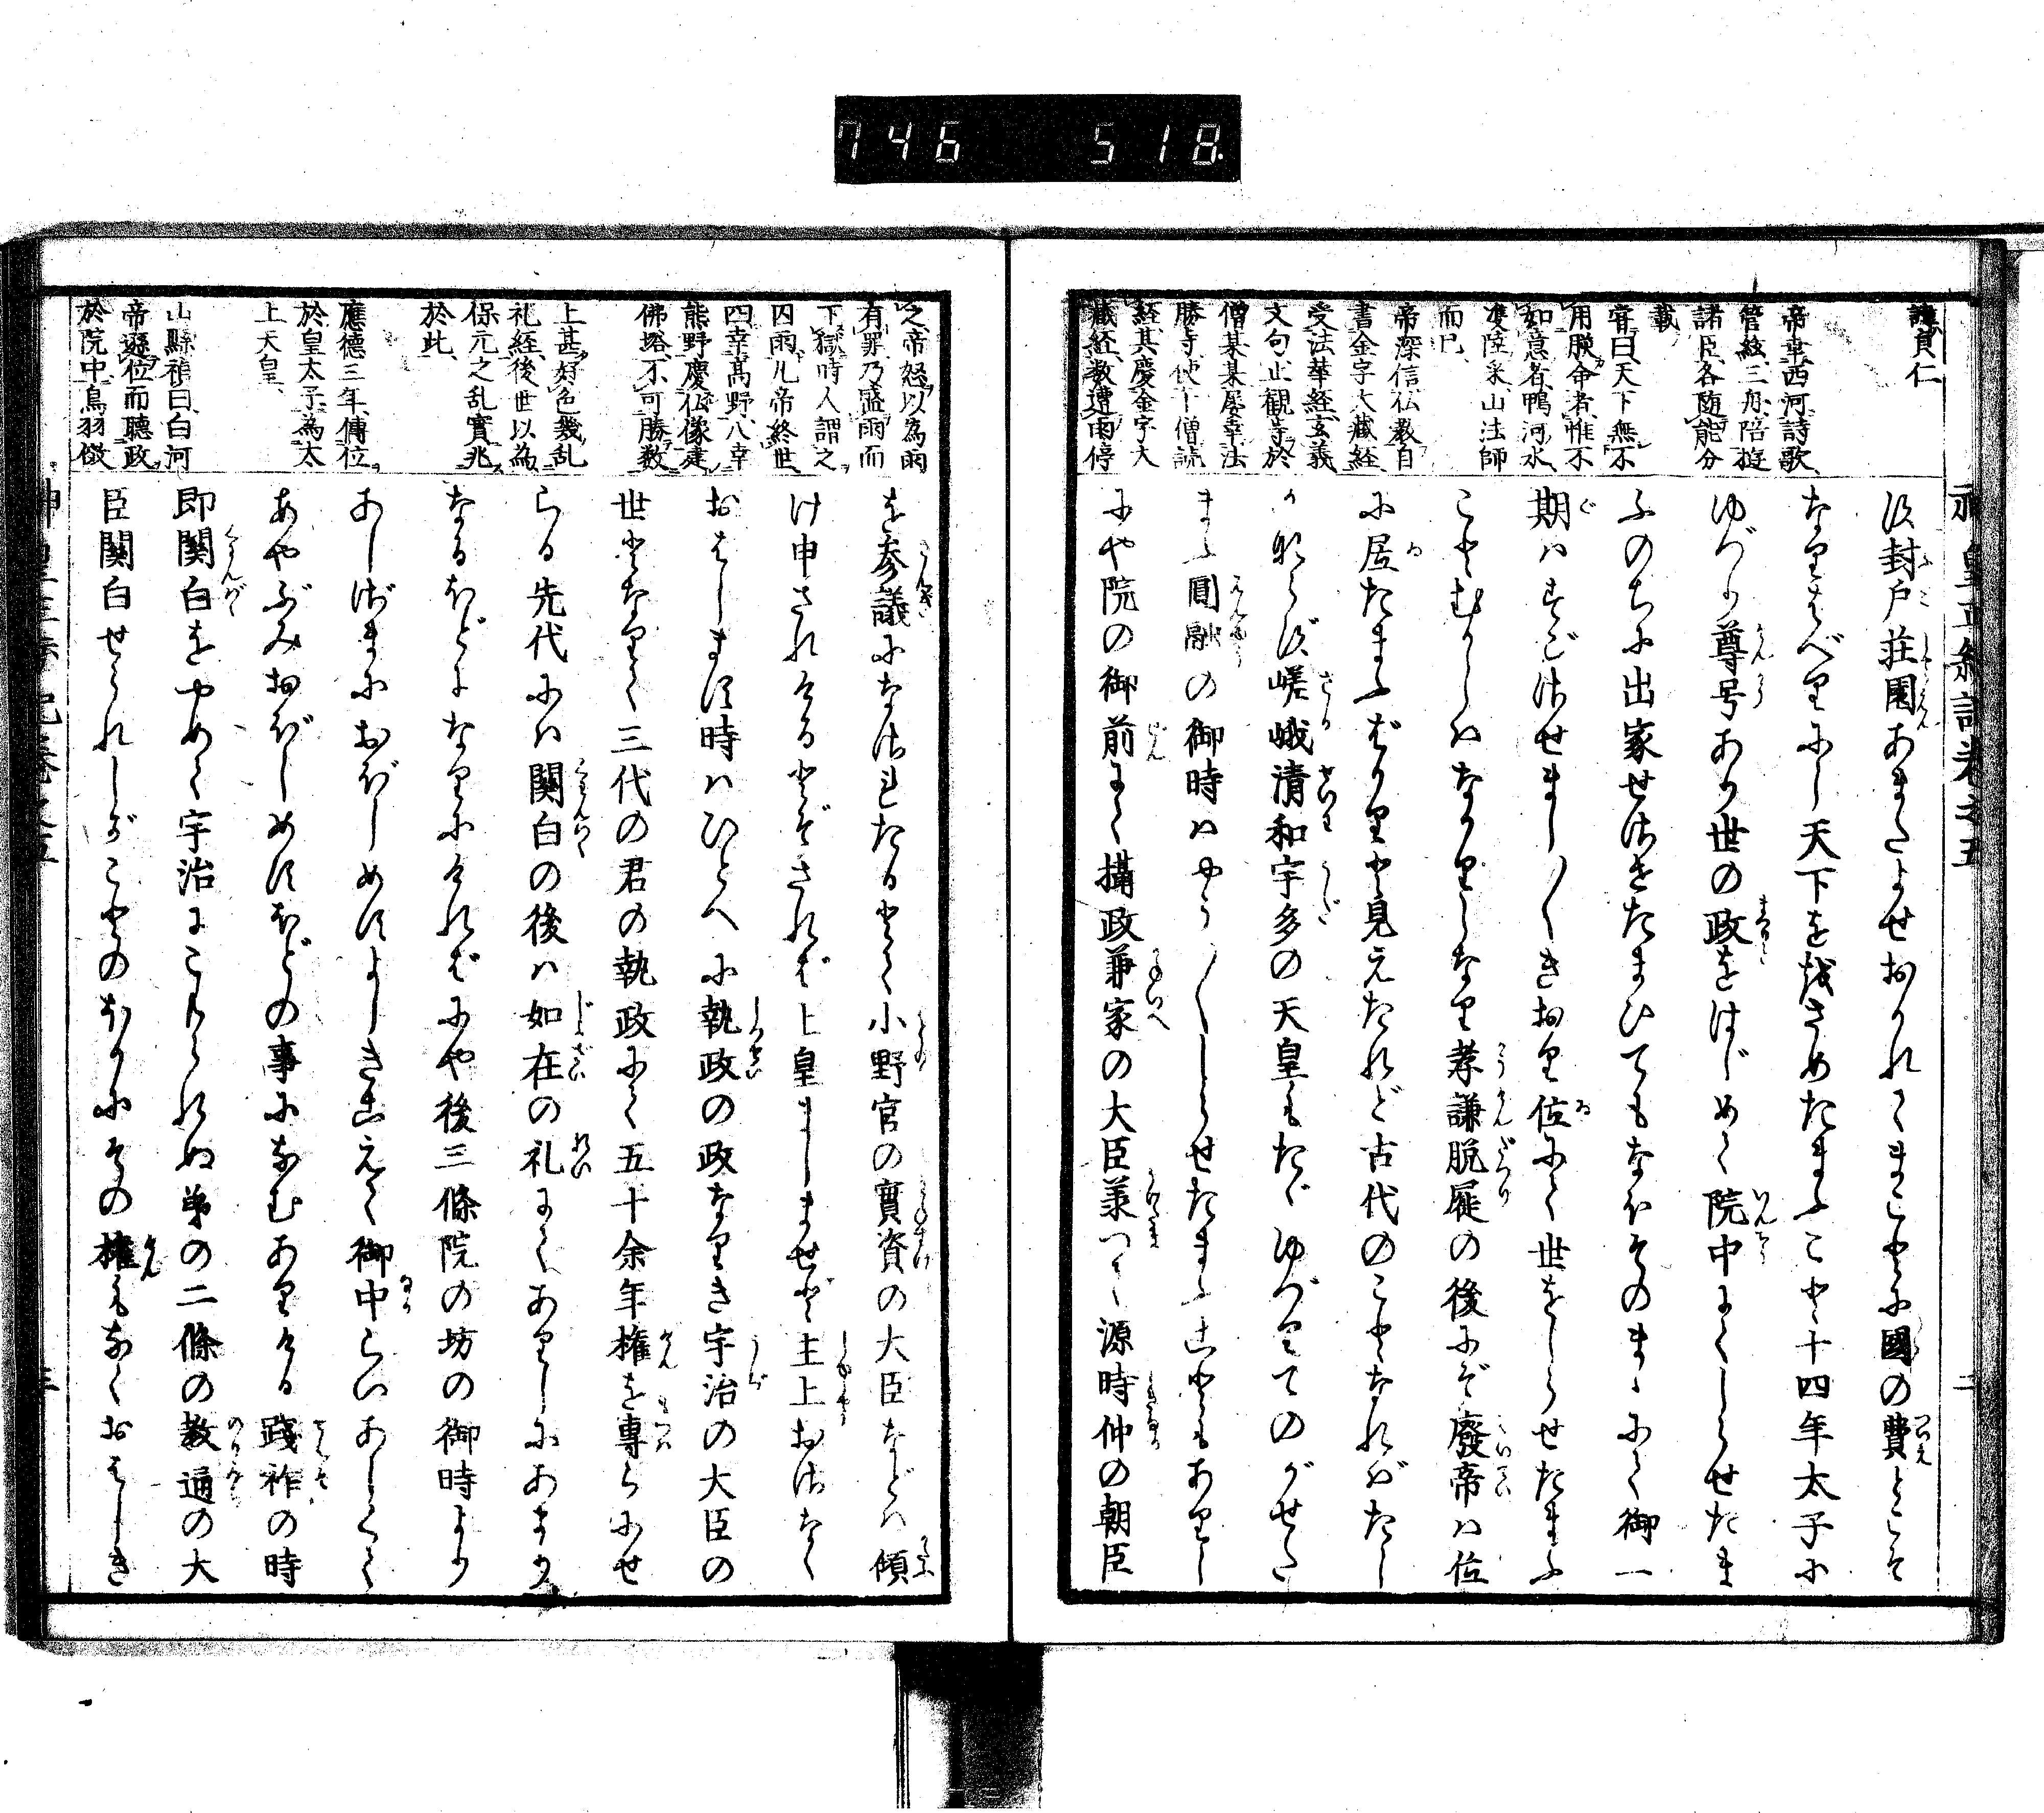 746 518.
神皇正統記巻之五 二
諱貞仁
帝幸西河詩歌
管絃三舟陪遊
諸臣各随能分
載
甞曰天下無不
用朕命者惟不
如意者鴨河水
双陸采山法師
而已
帝深信仏教自
書金字大藏経
受法華経玄義
文句止観寺於
僧某某屡幸法
勝寺使十僧読
経其慶金字大
藏経数遭雨停
ほ封戸荘園あまたよせおかれてまことに國の費とこそ
なりはべりにし天下を󠄁治さめたまふこと十四年太子に
ゆづり尊号あり世の政をはじめて院中にてしらせたま
ふのちに出家せさせたまひてもなほそのまゝにて御一
期はすごさせまし〳〵きおりゐ位にて世をしらせたまふ
ことむかしはなかりしなり孝謙脱屣の後にぞ廢帝は位
に居たまふばかりと見えたれど古代のことなればたし
かならず嵯峨清和宇多の天皇もたゞゆづりてのがせた
まふ圓融の御時はやう〳〵しらせたまふこともありし
にや院の御前にて攝政兼家の大臣兼つて源時仲の朝臣
之帝怒以為雨
有罪乃盛雨而
下獄時人謂之
囚雨凡帝終世
四幸髙野八幸
熊野慶仏像建
佛塔不可勝数
上甚好色幾乱
礼経後世以為
保元之乱實兆
於此
應徳三年傳位
於皇太子為太
上天皇
山縣禎曰白河
帝遜位而聽政
於院中鳥羽傚
を参議になされたるとて小野宮の實資の大臣などは傾
け申されけるとぞされば上皇ましませど主上おさなく
おはします時はひとへに執政の政なりき宇治の大臣の
世となりて三代の君の執政にて五十余年権を専らにせ
らる先代には関白の後は如在の礼にてありしにあまり
なるほどになりにければにや後三條院の坊の御時より
あしざまにおぼしめすよしきこえて御中らひあしくて
あやぶみおぼしめすほどの事になむありける踐祚の時
即関白をやめて宇治にこもられぬ弟の二條の教通の大
臣関白せられしがことのほかにその権もなくおはしき